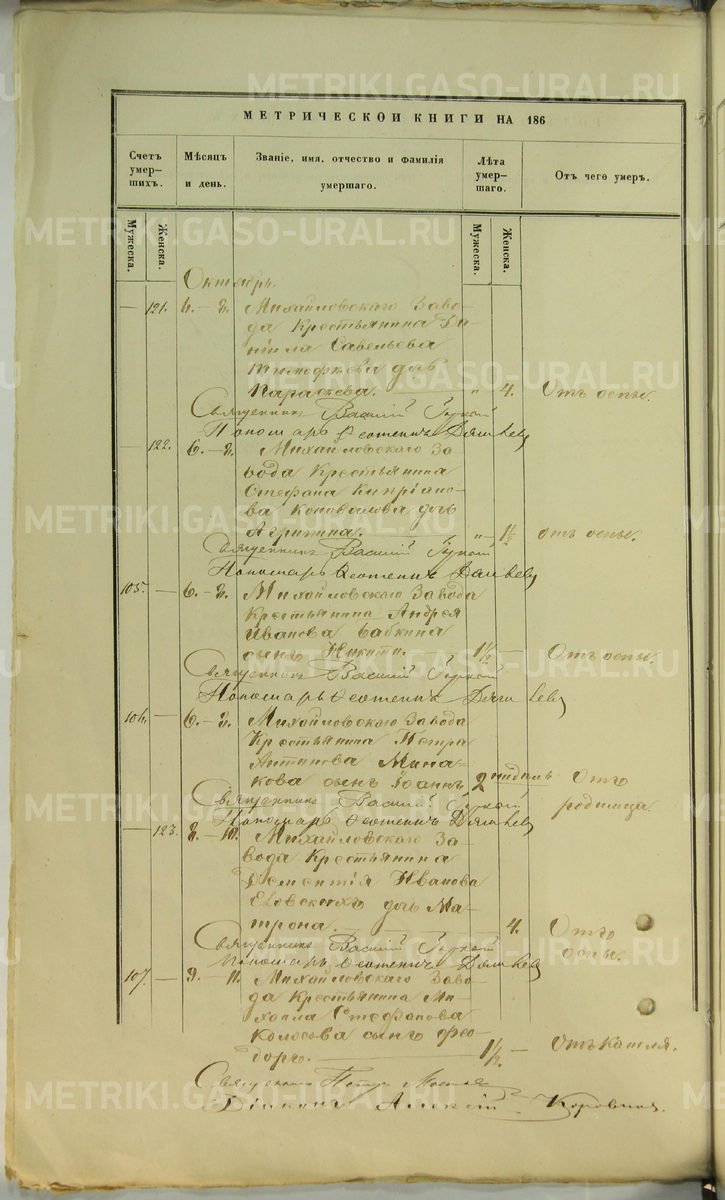 METRIKI.GASO-URAL.RU
МЕТРИЧЕСКОЙ КНИГИ НА 186
Счетъ умер-шихъ.
Мѣсяцъ и день.
Званіе, имя, отчество и фамилія умершаго.
Лѣта умер-шаго.
Отъ чего умеръ.
Мужеска.
Женска.
Мужеска.
Женска.
Октябрь.
— 121. Михайловскаго Заво-
да Крестьянина Да-
ніила Савельева
Тимофѣева дочь
Параскева. — „ 4. Отъ оспы.
Священникъ Василій
Пономарь
— 122. 6.— 8. Михайловскаго За-
вода Крестьянина
Стефана Кипріано-
ва Коновалова дочь
Агрипина. „— 1½ отъ оспы.
Священникъ Василій
Пономарь
105. — 6.— 8. Михайловскаго Завода
Крестьянина Андрея
Иванова Бабкина
сынъ Никита. 1½ — Отъ оспы.
Священникъ Василій
Пономарь
106. — 6.— 8. Михайловскаго Завода
Крестьянина Петра
Антипова Мина-
кова сынъ Іоаннъ 2 недѣль Отъ
родимца
Священникъ Василій
Пономарь
— 123. 8.— 10. Михайловскаго За-
вода Крестьянина
Дементія Иванова
дочь Ма-
трона. — 4. Отъ
оспы.
Священникъ Василій
Пономарь
107. — 9.— 11. Михайловскаго Заво-
да Крестьянина Ми-
хаила Стефанова
Колосова сынъ Фео-
доръ. — 1½ — Отъ кашля.
Священникъ Петръ
Діаконъ Алексій Коровинъ.